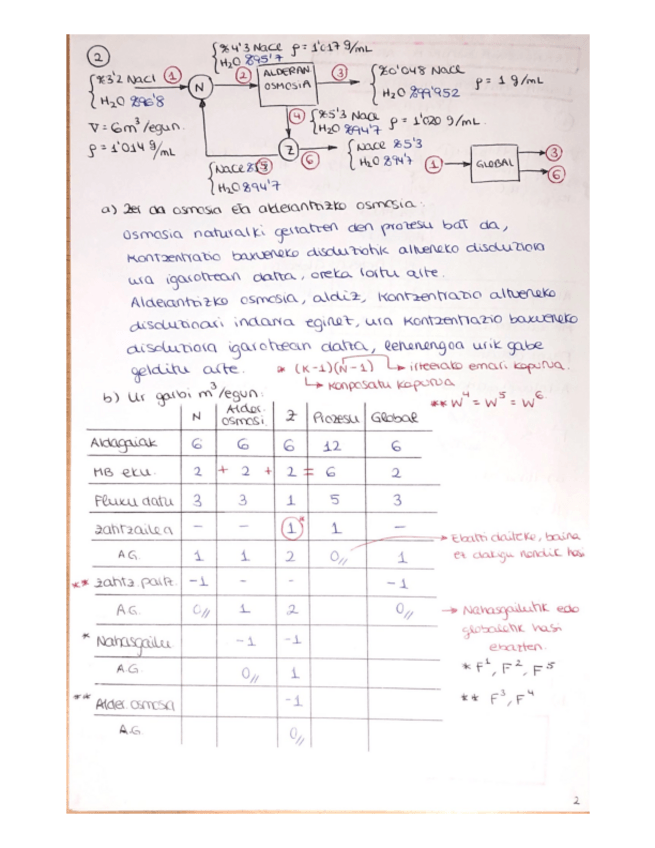 2
{%4'3 NaCl ρ = 1'017 g/mL
H2O %95'7
{%3'2 NaCl 1 N 2 ALDERAN OSMOSIA 3 {%0'048 NaCl ρ = 1 g/mL
H2O %96'8 H2O %99'952
V̇ = 6 m³/egun. 4 {%5'3 NaCl ρ = 1'020 g/mL.
H2O %94'7
ρ = 1'014 g/mL Z 6 {NaCl 5'3
H2O %94'7
{NaCl 5 1 GLOBAL 3
H2O %94'7 6
a) Zer da osmosia eta alderantzizko osmosia:
Osmosia naturalki gertatzen den prozesu bat da,
kontzentrazio baxueneko disoluziotik altueneko disoluziora
ura igarotzean datza, oreka lortu arte.
Alderantzizko osmosia, aldiz, kontzentrazio altueneko
disoluzioari indarra eginez, ura kontzentrazio baxueneko
disoluziora igarotzean datza, lehenengoa urik gabe
gelditu arte.
* (K-1)(N-1) → irteerako emari kopurua.
→ konposatu kopurua
b) Ur garbi m³/egun:
** W⁴ = W⁵ = W⁶
N Alder. osmosi Z Prozesu Global
Aldagaiak 6 6 6 12 6
MB eku. 2 + 2 + 2 = 6 2
Fluxu datu 3 3 1 5 3
zatitzailea - - 1* 1 -
A.G. 1 1 2 0// 1
→ Ebatzi daiteke, baina
ez dakigu nondik hasi
** zatitz. partz. -1 - - -1
A.G. 0// 1 2 0//
→ Nahasgailutik edo
globaletik hasi
ebazten.
* Nahasgailu -1 -1
A.G. 0// 1
* F¹, F², F⁵
** Alder. osmosia -1
** F³, F⁴
A.G. 0//
2